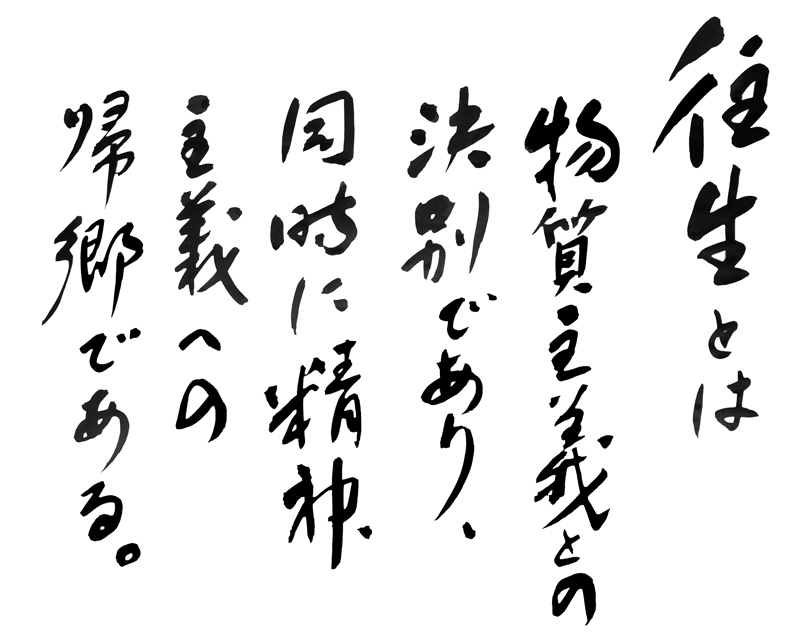 往生とは
物質主義との
決別であり、
同時に精神
主義への
帰郷である。